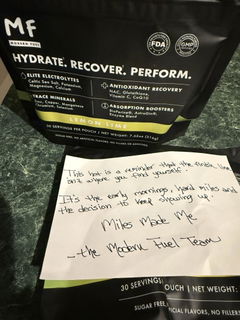 MF
MODERN FUEL
HYDRATE. RECOVER. PERFORM.
ELITE ELECTROLYTES
Celtic Sea Salt, Potassium,
Magnesium, Calcium
ANTIOXIDANT RECOVERY
NAC, Glutathione,
Vitamin C, CoQ10
TRACE MINERALS
Iron, Copper, Manganese
ABSORPTION BOOSTERS
BioPerine®, AstraGin®,
Enzyme Blend
FDA
GMP
LEMON LIME
30 SERVINGS PER POUCH / NET WEIGHT:
This hat is a reminder that the finish line
isn't where you find yourself.
It's the early mornings, hard miles and
the decision to keep showing up.
Miles Made Me
- the Modern Fuel Team
30 SERVINGS
OUCH / NET WEIGHT:
SUGAR FREE,
FICIAL FLAVORS, NO FILLERS